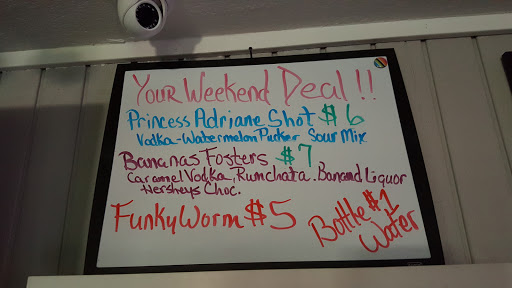 Your Weekend Deal!!
Princess Adriane Shot $6
Vodka-Watermelon Pucker Sour Mix
Bananas Fosters $7
Caramel Vodka, Rumchata. Banand Liquor
Hersheys Choc.
Funky Worm $5
Bottle $1
Water